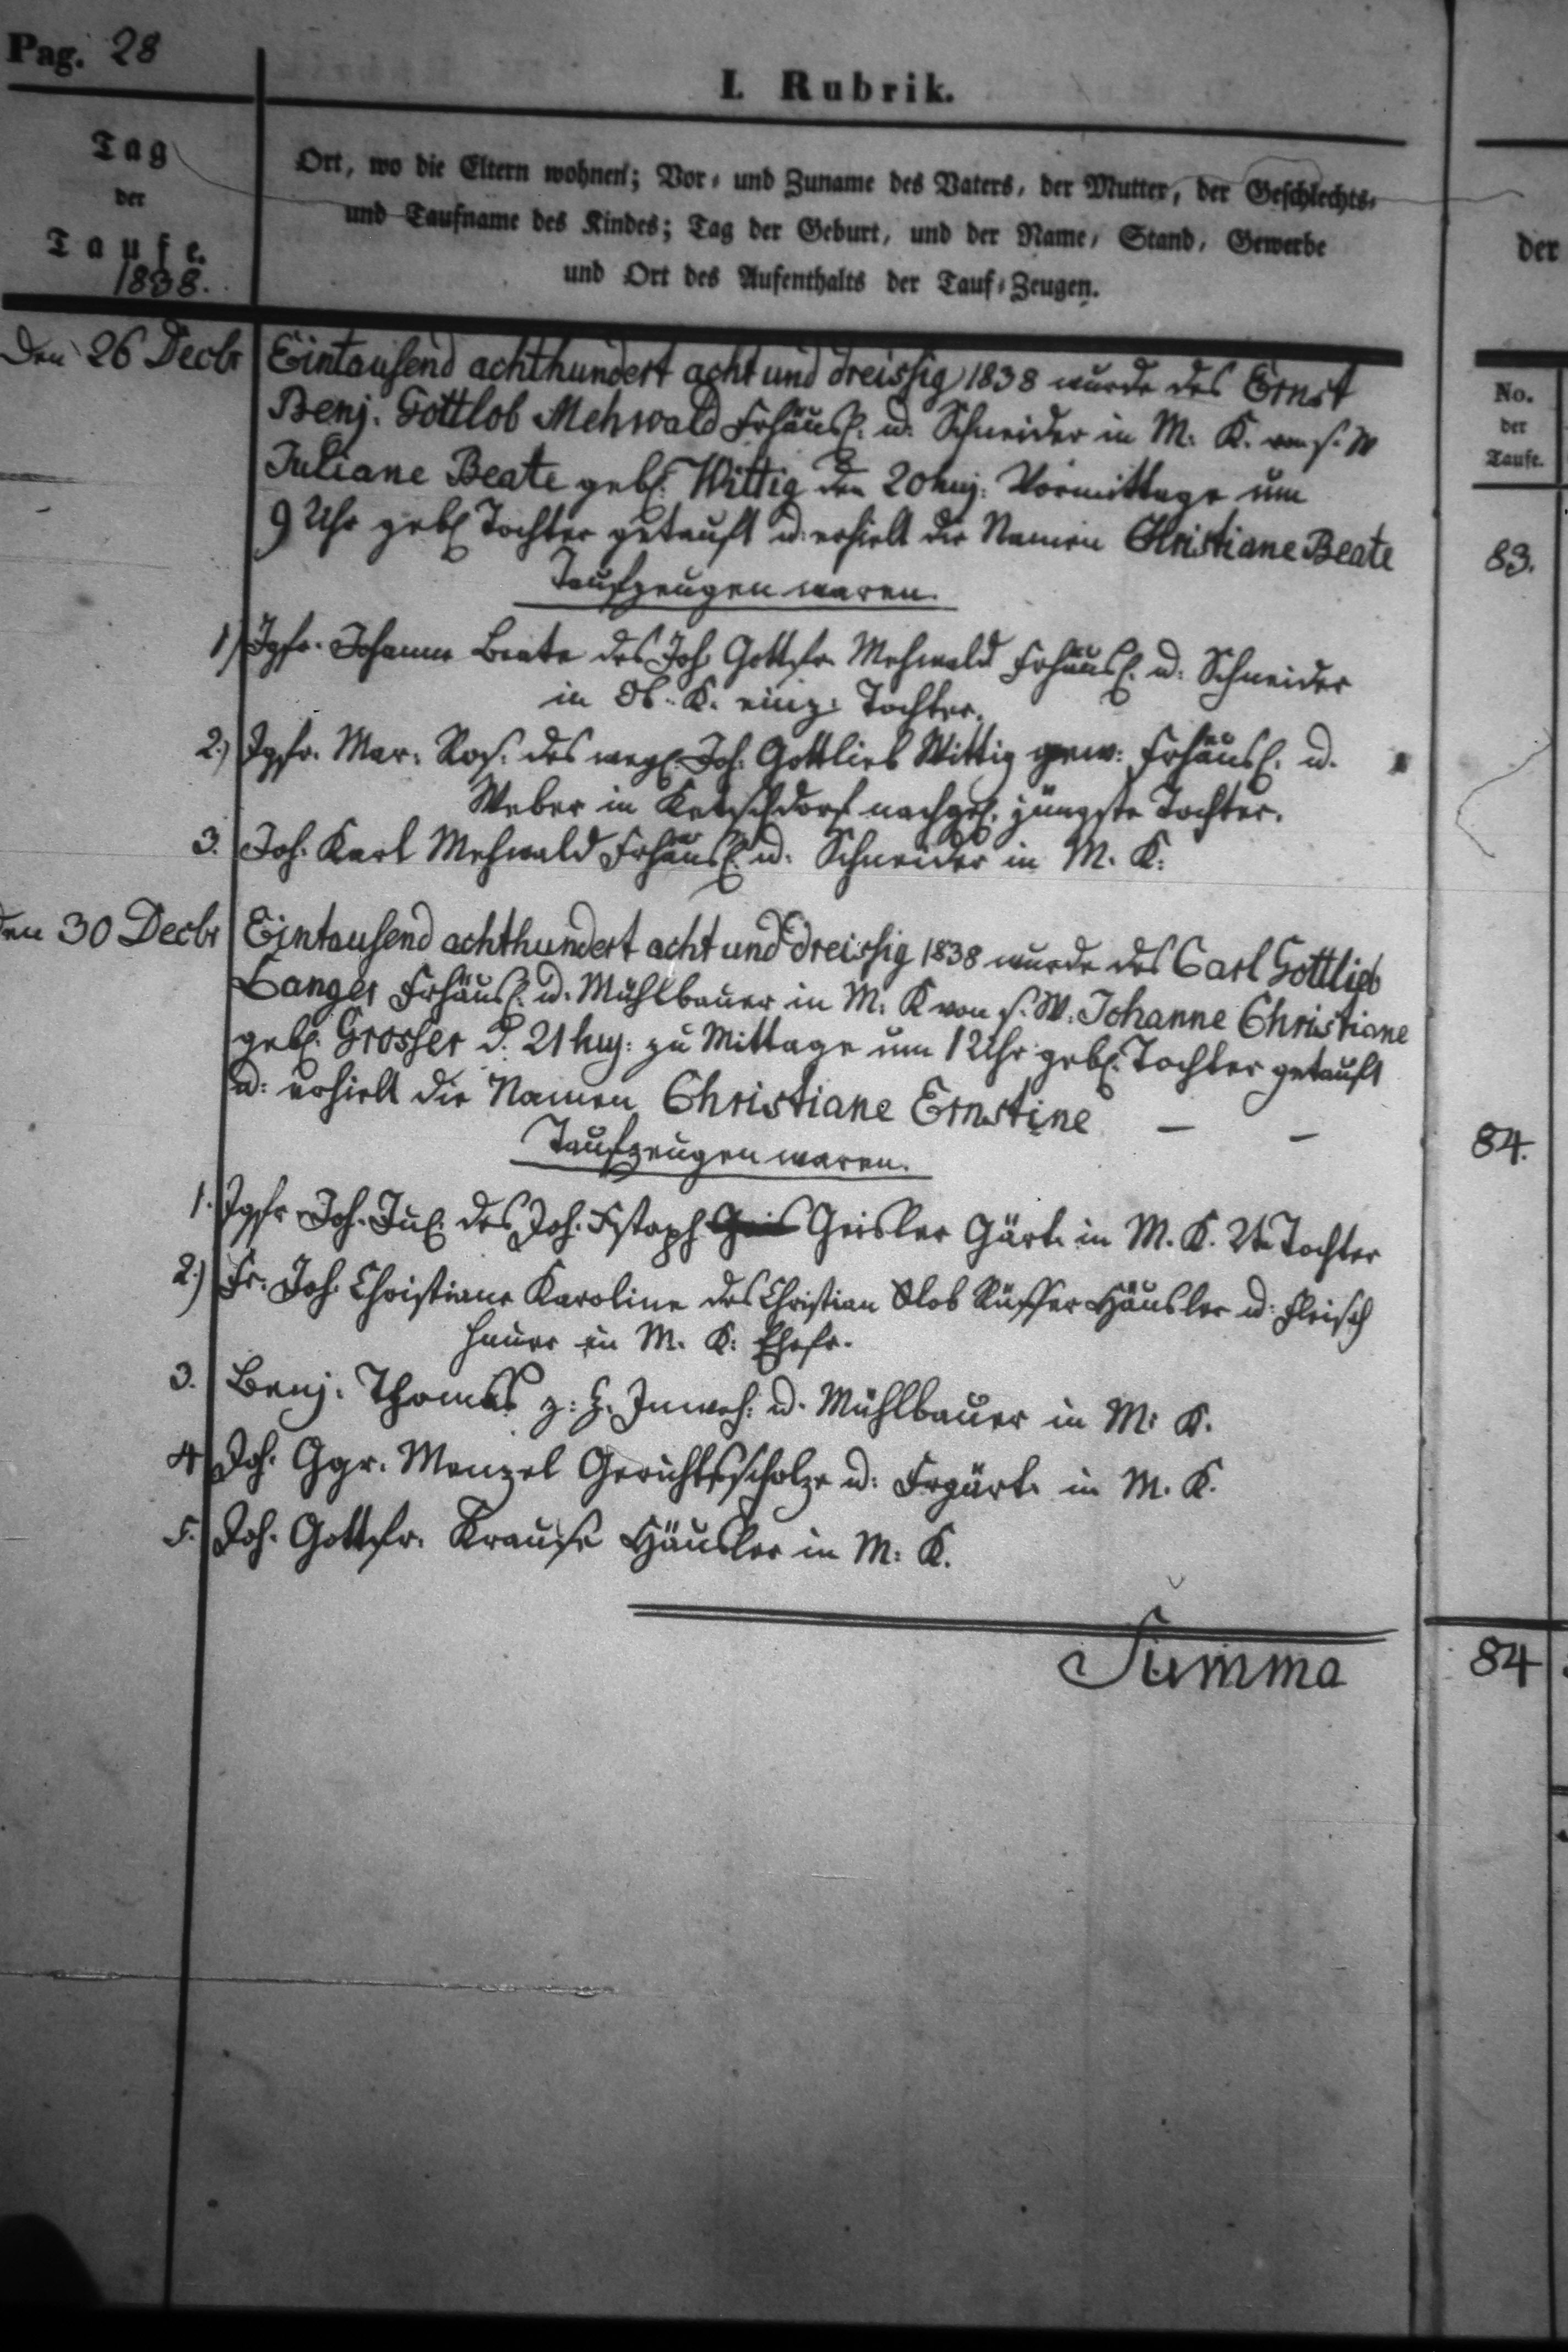 Pag. 28
I. Rubrik.
Tag
der
Taufe.
1838.
Ort, wo die Eltern wohnen; Vor- und Zuname des Vaters, der Mutter, der Geschlechts-
und Taufname des Kindes; Tag der Geburt, und der Name, Stand, Gewerbe
und Ort des Aufenthalts der Tauf-Zeugen.
der
No.
der
Taufe.
Den 26 Decbr Eintausend achthundert acht und dreissig 1838 wurde des Ernst
Benj. Gottlob Mehwald Frhäusl. u. Schneider in M. K. von s. W
Juliane Beate gebl. Wittig den 20 huj. Vormittags um
9 Uhr gebl Tochter getauft u. erhielt die Namen Christiane Beate
83.
Taufzeugen waren.
1) Jgfr. Johanne Beate des Joh. Gottfr. Mehwald Frhäusl. u. Schneider
in Ob. K. einz. Tochter.
2.) Jgfr. Mar. Ros. des weyl. Joh. Gottlieb Wittig gew. Frhäusl. u.
Weber in Ketschdorf nachgel. jüngste Tochter.
3. Joh. Karl Mehwald Frhäusl. u. Schneider in M. K.
den 30 Decbr Eintausend achthundert acht und dreissig 1838 wurde des Carl Gottlieb
Langer Frhäusl. u. Mühlbauer in M. K von s. W. Johanne Christiane
gebl. Grosser d. 21 huj. zu Mittage um 1 Uhr gebl. Tochter getauft
u. erhielt die Namen Christiane Ernstine – –
84.
Taufzeugen waren.
1. Jgfr Joh. Jul. des Joh. Geisler Gärt. in M. K. Tochter
2.) Fr. Joh. Christiane Karoline des Christian Häusler u. Fleisch
hauer in M. K. Ehefr.
3. Benj. Thomas z. Z. Inwoh. u. Mühlbauer in M. K.
4 Joh. Ggr. Menzel Gerichtsscholze u. Frgärt. in M. K.
5. Joh. Gottfr. Krause Häusler in M. K.
Summa
84